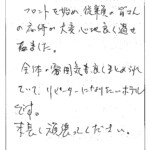 フロントを始め、従業員の皆さん
の応待が大変心地良く過せ
ました。
全体の雰囲気も良くまとめられ
ていて、リピーターになりたいホテル
です。
末長く頑張って下さい。